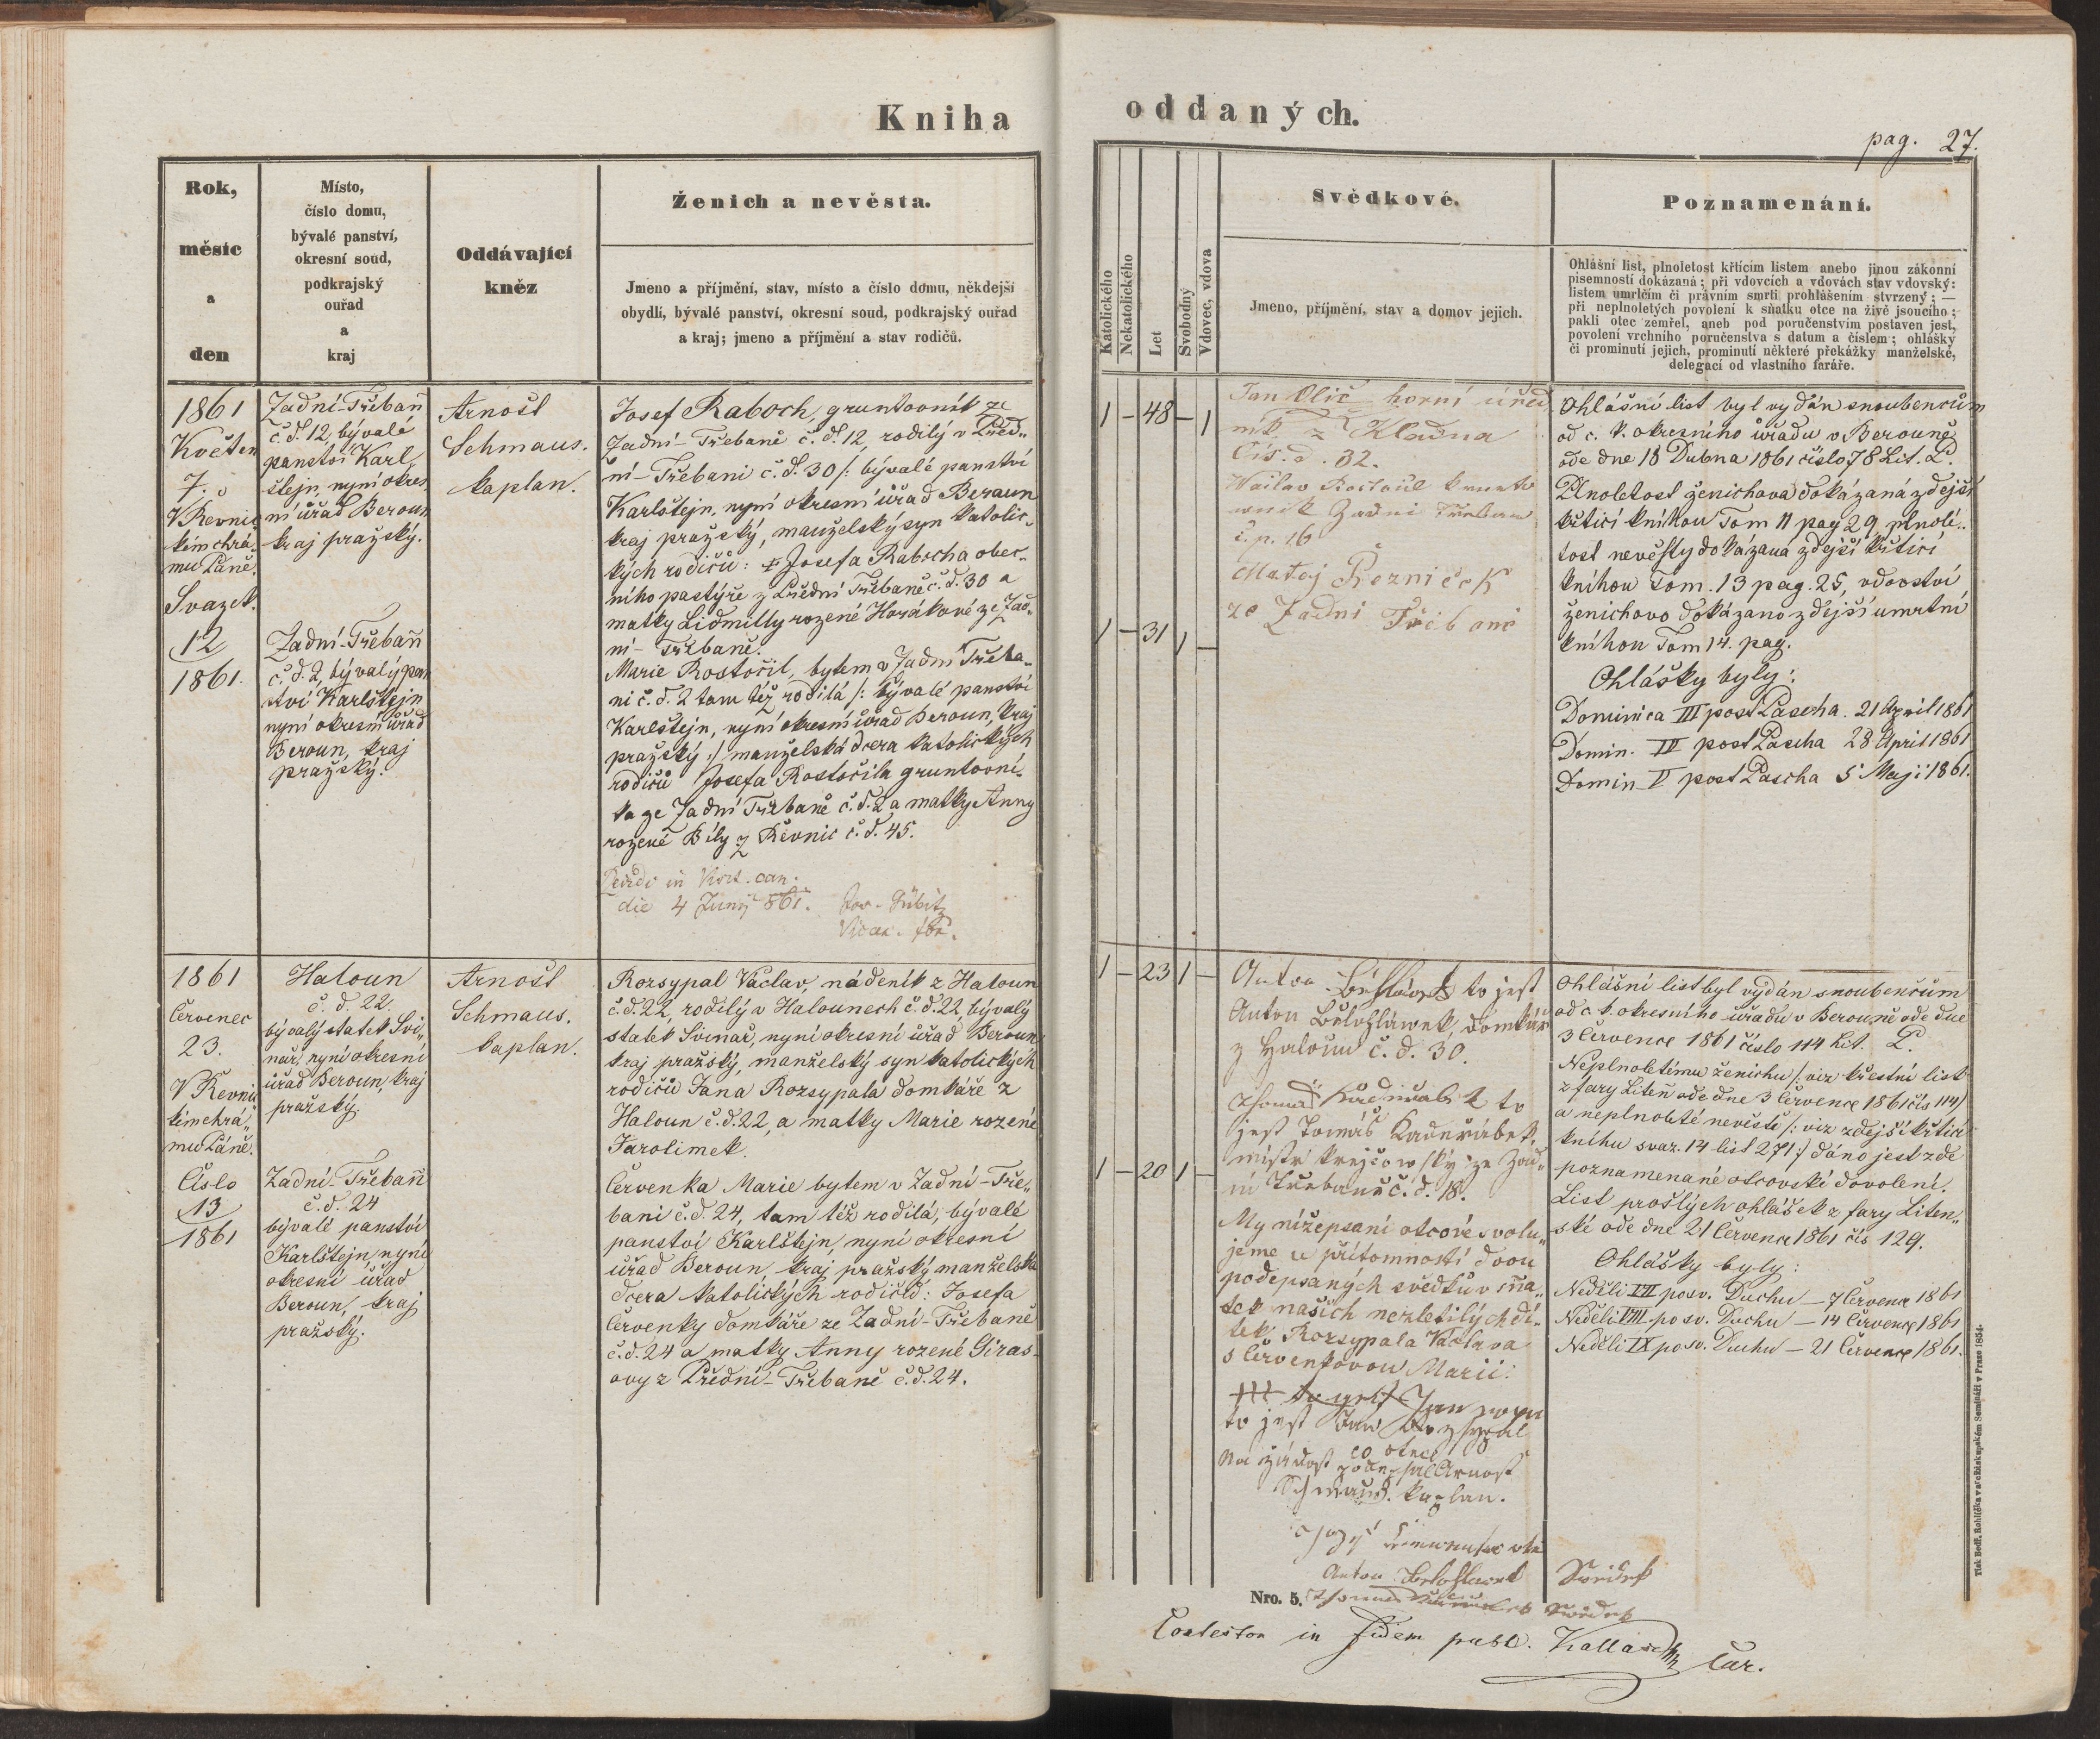 Kniha
Rok,
měsíc
a
den
Místo,
číslo domu,
bývalé panství,
okresní soud,
podkrajský
ouřad
a
kraj
Oddávající
kněz
Ženich a nevěsta.
Jmeno a příjmění, stav, místo a číslo domu, někdejší
obydlí, bývalé panství, okresní soud, podkrajský ouřad
a kraj; jmeno a příjmění a stav rodičů.
1861
Květen
7.
V Řevnic
kém chrá„
mu Páně.
Svazek.
12
1861.
Zadní-Třebaň
č. d. 12, bývalé
panství Karl„
štejn, nyní okres„
ní úřad Beroun
kraj pražský.
Zadní-Třebaň
č. d. 2, bývalý pan
ství Karlštejn
nyní okresní úřad
Beroun, kraj
pražský.
Arnošt
Schmaus.
kaplan.
Josef Raboch, gruntovník ze
Zadní-Třebaně č. d. 12, rodilý v Před„
ní-Třebani č. d. 30 /: bývalé panství
Karlštejn, nyní okresní úřad Beraun
kraj pražský, manželský syn katolic„
kých rodičů: Josefa Rabocha obec„
ního pastýře z Přední Třebaně č. d. 30 a
matky Lidmilly rozené Horákové ze Zad„
ní-Třebaně.
Marie Rostočil, bytem v Zadní Třeba„
ni č. d. 2 tam též rodilá /: bývalé panství
Karlštejn, nyní okresní úřad Beroun, kraj
pražský :/ manželská dcera katolických
rodičů Josefa Rostočila gruntovní„
ka ze Zadní Třebaně č. d. 2 a matky Anny
rozené Bíly z Řevnic č. d. 45.
in Visit. can.
die 4 Junij 861.
1861
Červenec
23.
V Řevnic
kém chrá„
mu Páně.
Číslo
13
1861
Haloun
č. d. 22.
bývalý statek Svi„
nař, nyní okresní
úřad Beroun, kraj
pražský.
Zadní-Třebaň
č. d. 24
bývalé panství
Karlštejn, nyní
okresní úřad
Beroun, kraj
pražský.
Arnošt
Schmaus.
kaplan.
Rozsypal Václav, nádeník z Haloun
č. d. 22, rodilý v Halounech č. d. 22, bývalý
statek Svinař, nyní okresní úřad Beroun
kraj pražský, manželský syn katolických
rodičů Jana Rozsypala domkáře z
Haloun č. d. 22, a matky Marie rozené
Jarolimek.
Červenka Marie bytem v Zadní-Tře„
bani č. d. 24, tam též rodilá, bývalé
panství Karlštejn, nyní okresní
úřad Beroun, kraj pražský manželská
dcera katolických rodičů: Josefa
Červenky domkáře ze Zadní-Třebaně
č. d. 24 a matky Anny rozené Giras„
ovy z Přední-Třebaně č. d. 24.
oddaných.
pag. 27.
Katolického
Nekatolického
Let
Svobodný
Vdovec, vdova
Svědkové.
Jmeno, příjmění, stav a domov jejich.
Poznamenání.
Ohlášní list, plnoletost křtícím listem anebo jinou zákonní
písemností dokázaná; při vdovcích a vdovách stav vdovský:
listem umrlčím či právním smrti prohlášením stvrzený; —
při neplnoletých povolení k sňatku otce na živě jsoucího;
pakli otec zemřel, aneb pod poručenstvím postaven jest,
povolení vrchního poručenstva s datum a číslem; ohlášky
či prominutí jejich, prominutí některé překážky manželské,
delegací od vlastního faráře.
1 — 48 — 1
1 — 31 1 —
Jan Olič horní úřed
ník z Kladna
Čís. d. 32.
Zadní Třeban
č. p. 16
Matěj Řezníček
ze Zadní Třebaně
Ohlášní list byl vydán snoubencům
od c. k. okresního úřadu v Berouně
ode dne 18 Dubna 1861 číslo 78 Lit. P.
Plnoletost ženichova dokázaná zdejší
křticí knihou Tom 11 pag 29, plnole„
tost nevěsty dokázaná zdejší křticí
knihou Tom. 13 pag. 25, vdovství
ženichovo dokázano zdejší umrtní
knihou Tom 14. pag.
Ohlášky byly:
Dominica III post Pascha. 21 April 1861
Domin. IV post Pascha 28 April 1861
Domin V post Pascha 5 Maji 1861.
1 — 23 1 —
1 — 20 1 —
Anton to jest
Anton Bělohláwek, domkář
z Haloun č. d. 30.
to
jest Tomáš Kadeřábek,
mistr krejčowský ze Zad„
ní Třebaně č. d. 18.
My nížepsaní otcové svolu„
jeme u přítomnosti dvou
podepsaných svědků v sňa„
tek našich nezletilých dí„
tek Rozsypala Václava
s Červenkovou Marií:
to jest Jan Rozsypal
co otec
Na žádost podepsal Arnošt
Schmaus. kaplan.
Anton Svědek
Svědek
Nro. 5.
Ohlášní list byl vydán snoubencům
od c. k. okresního úřadu v Berouně ode dne
3 Července 1861 číslo 114 Lit. P.
Neplnoletímu ženichu /: viz křestní list
z fary Liteň ode dne 3 Července 1861 čís 114/
a neplnoleté nevěstě /: viz zdejší křticí
knihu svaz. 14 list 271 :/ dáno jest zde
poznamenané otcovské dovolení.
List prošlých ohlášek z fary Liten„
ské ode dne 21 Července 1861 čís 129.
Ohlášky byly:
Neděli VII po sv. Duchu — 7 Července 1861
Neděli VIII po sv. Duchu — 14 Července 1861
Neděli IX po sv. Duchu — 21 Července 1861.
in fidem publ.
Tisk Bedř. Rohlíčka v arcibiskupském Semináři v Praze 1854.